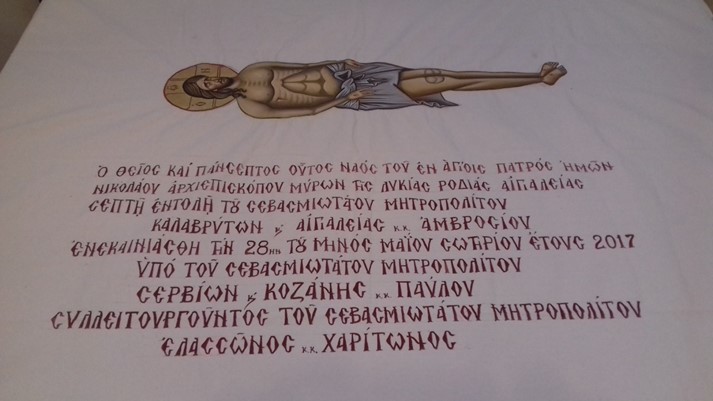 Ὁ ΘΕῖΟϹ ΚΑΙ ΠΆΝϹΕΠΤΟϹ ΟΥΤΟϹ ΝΑΌϹ ΤΟῦ ἘΝ ἉΓΊΟΙϹ ΠΑΤΡΌϹ ἩΜῶΝ
ΝΙΚΟΛΆΟΥ ἈΡΧΙΕΠΙϹΚΌΠΟΥ ΜΎΡΩΝ ΤῆϹ ΛΥΚΊΑϹ ΡΟΔΙᾶϹ ΑἸΓΙΑΛΕΊΑϹ
ϹΕΠΤῇ ἘΝΤΟΛῇ ΤΟῦ ϹΕΒΑϹΜΙΩΤΆΤΟΥ ΜΗΤΡΟΠΟΛΊΤΟΥ
ΚΑΛΑΒΡΎΤΩΝ κ' ΑἸΓΙΑΛΕΊΑϹ κ.κ. ἈΜΒΡΟϹΊΟΥ
ἘΝΕΚΑΙΝΙΆϹΘΗ ΤῊΝ 28ην ΤΟῦ ΜΗΝΌϹ ΜΑΪ́ΟΥ ϹΩΤΗΡΊΟΥ ἜΤΟΥϹ 2017
ὙΠΌ ΤΟΥ ϹΕΒΑϹΜΙΩΤΆΤΟΥ ΜΗΤΡΟΠΟΛΊΤΟΥ
ϹΕΡΒΊΩΝ κ' ΚΟΖΆΝΗϹ κ.κ. ΠΑΎΛΟΥ
ϹΥΛΛΕΙΤΟΥΡΓΟῦΝΤΌϹ ΤΟῦ ϹΕΒΑϹΜΙΩΤΆΤΟΥ ΜΗΤΡΟΠΟΛΊΤΟΥ
ἘΛΑϹϹῶΝΟϹ κ.κ. ΧΑΡΊΤΩΝΟϹ